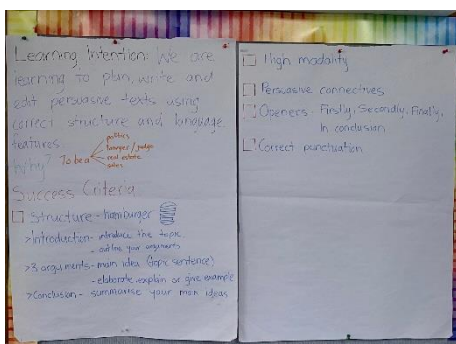 Learning Intention: We are
learning to plan, write and
edit persuasive texts using
correct structure and language
features.
Why? To be a
politics
lawyer / judge
real estate
sales
Success Criteria
Structure - hamburger
>Introduction - introduce the topic
- outline your arguments
>3 arguments - main idea (topic sentence)
- elaborate explain or give example
>Conclusion - summarise your main ideas
High modality
Persuasive connectives
Openers - Firstly, Secondly, Finally,
In conclusion
Correct punctuation